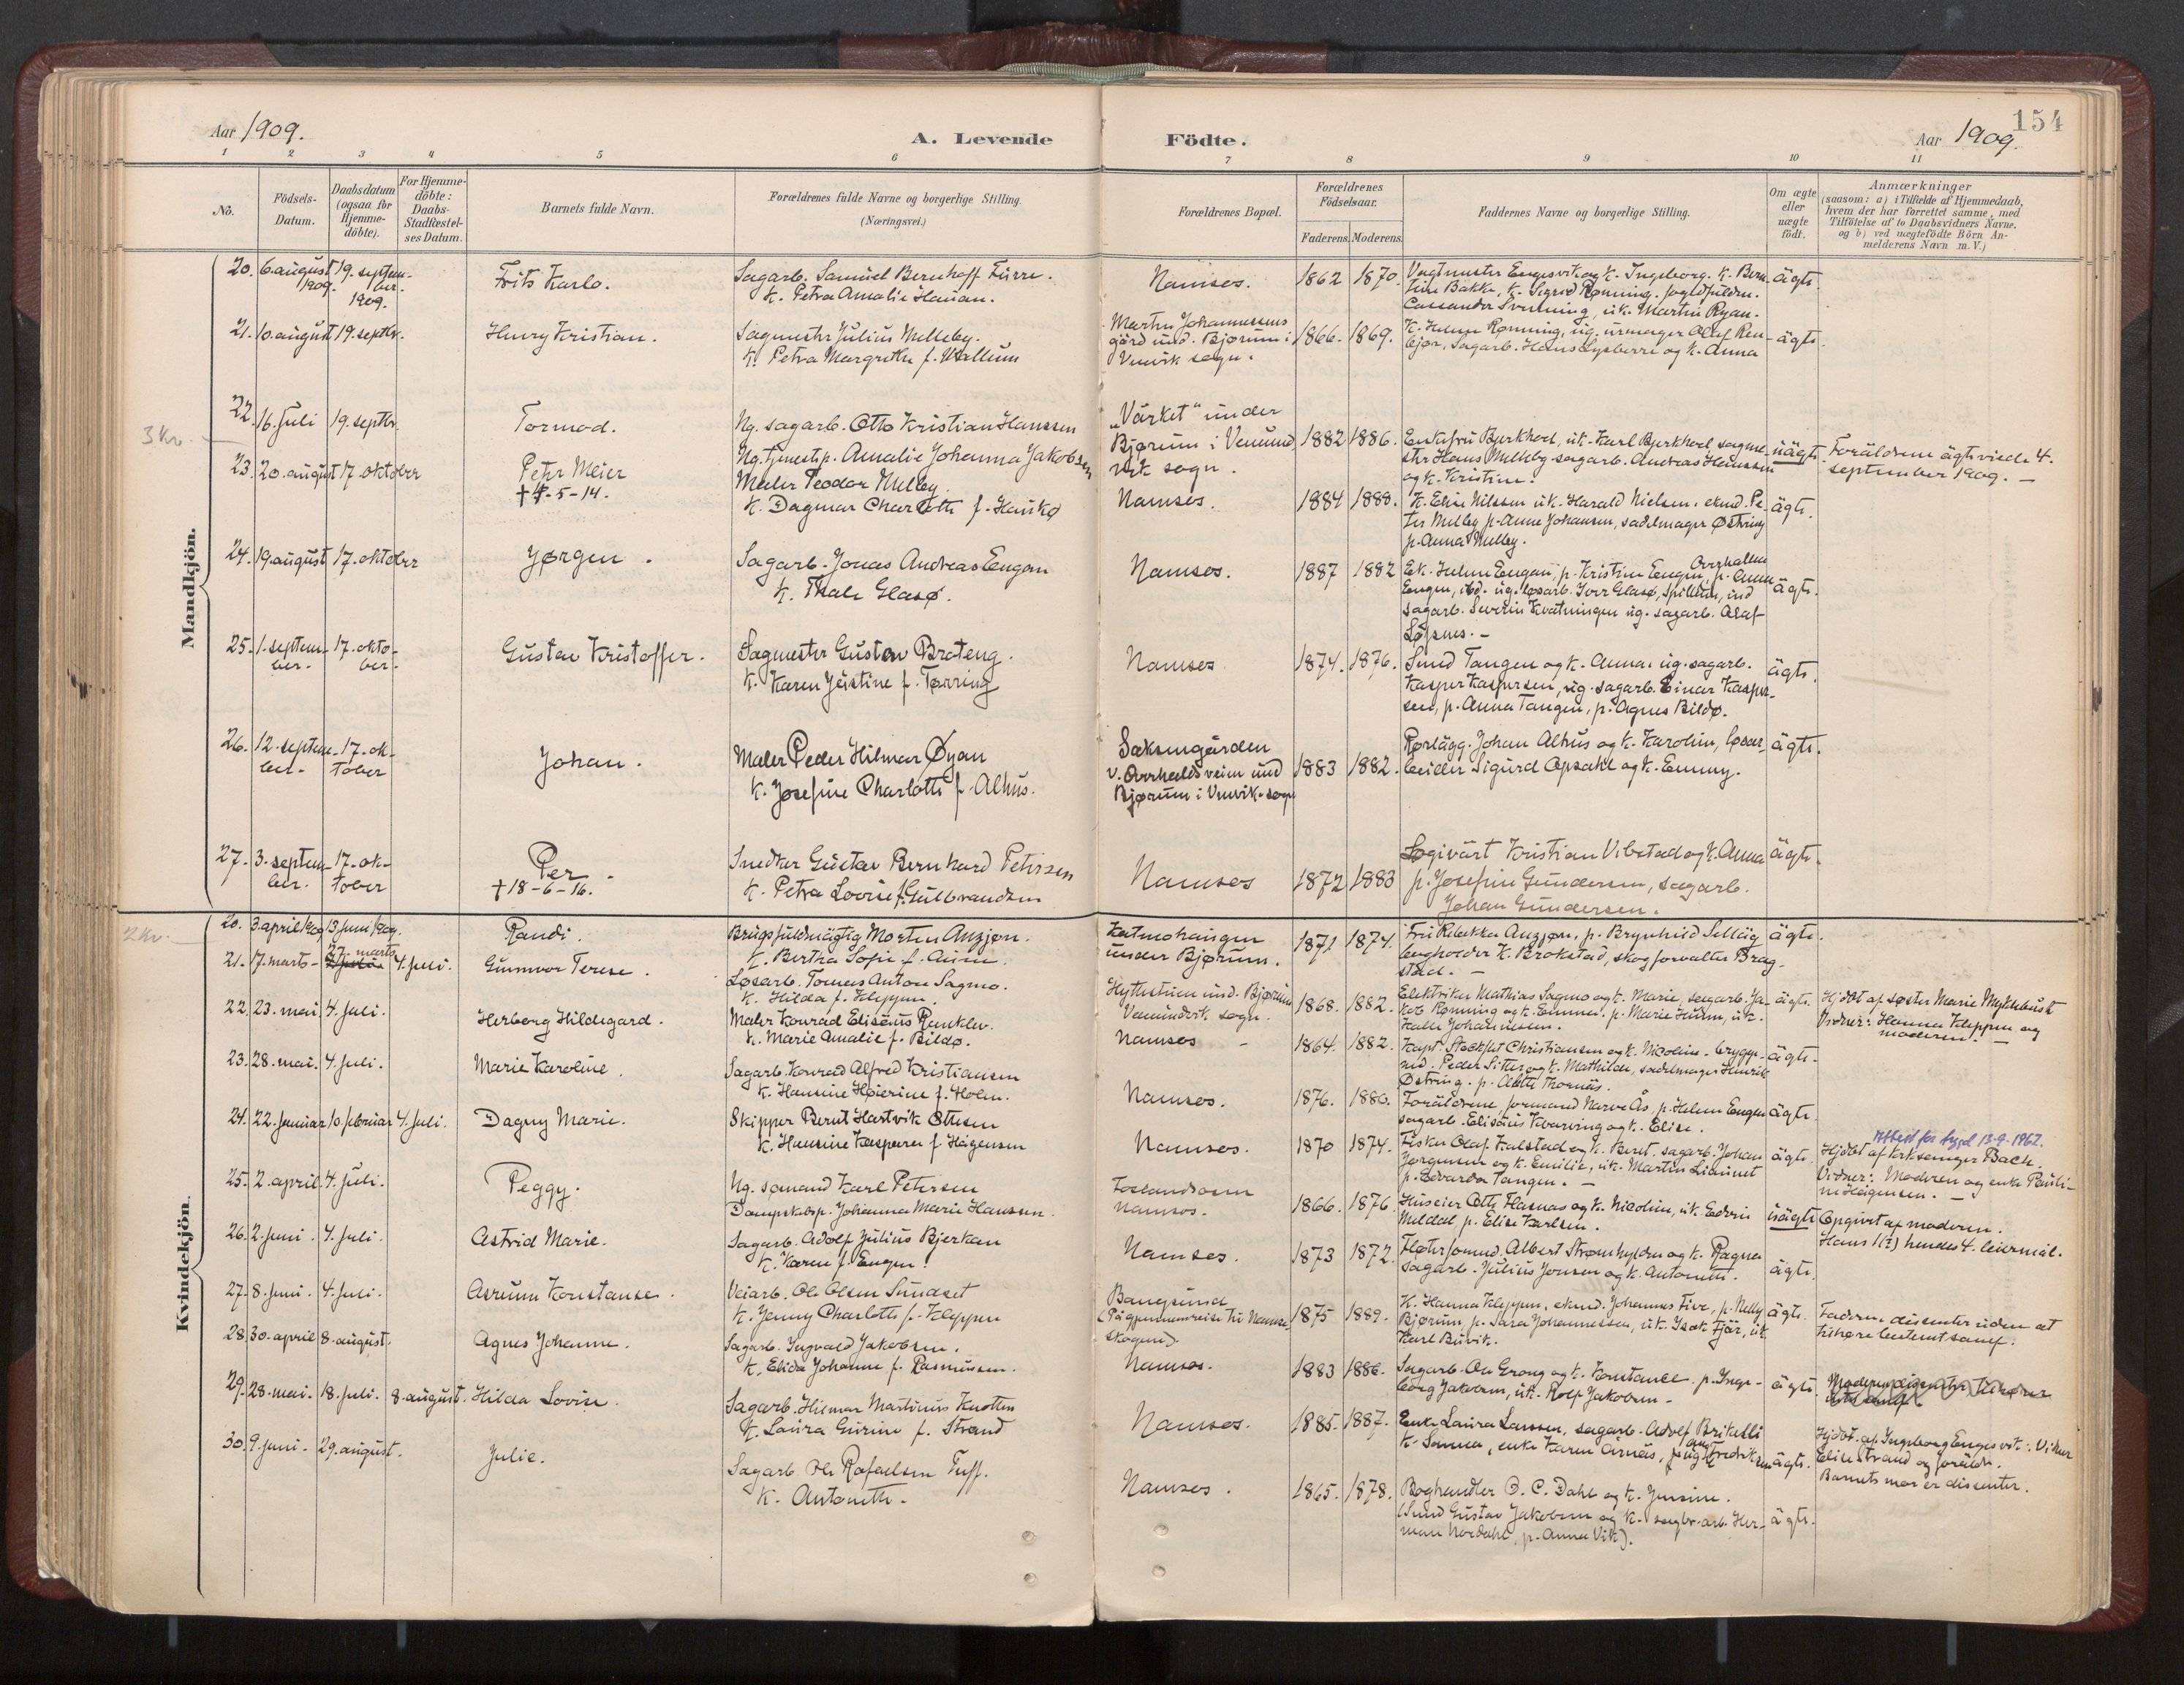 154
Aar 1909.
A. Levende Födte.
Aar 1909.
1 2 3 4 5 6 7 8 9 10 11
No.
Födsels-
Datum.
Daabsdatum
(ogsaa for
Hjemme-
döbte).
For Hjemme-
döbte:
Daabs-
Stadfæstel-
ses Datum.
Barnets fulde Navn.
Forældrenes fulde Navne og borgerlige Stilling.
(Næringsvei.)
Forældrenes Bopæl.
Forældrenes
Födselsaar.
Faderens. Moderens.
Faddernes Navne og borgerlige Stilling.
Om ægte
eller
uægte
født.
Anmærkninger
(saasom: a) i Tilfælde af Hjemmedaab,
hvem der har forrettet samme, med
Tilföielse af to Daabsvidners Navne.
og b) ved uægtefödte Börn An-
melderens Navn m. V.)
Mandkjön.
20. 6. august 1909. 19. septem-
ber. 1909.
Frits Karlo.
Sagarb. Samuel Bernhoff Fürre.
K. Petra Amalie Hauan.
Namsos. 1862 1870.
Vagtmester Engesvik og k. Ingeborg. K. Bern-
tine Bakke, k. Sigrid Rønning.
ägte.
21. 10. august 19. septbr.
Henry Kristian.
Sagmester Julius Melleby.
K. Petra Margrethe f. Vallum
Martin Johannesens
gård und. Bjørum i
Vemvik sogn.
1866. 1869.
K. Helene Rønning, ug. urmager Olaf Ren-
bjør, Sagarb. Hans Lysberre og k. Anna
ägte.
3 Kr.
22. 16. Juli 19. septbr.
Tormod.
Ng. sagarb. Otto Kristian Hanssen
Ng. tjenestep. Amalie Johanna Jakobsen
„Värket" under
Bjørum i Vemund-
vik sogn.
1882 1886.
Enkefru Bjerkhoel, uk. Karl Bjerkhoel, sagme-
ster Hans Melleby sagarb. Andreas Hanssen
og k. Kristine.
uägte
Foräldrene ägteviede 4.
september 1909. -
23. 20. august 17 oktober
Petter Meier
† 4-5-14.
Maler Teodor Melby
K. Dagmar Charlotte f. Haukø
Namsos. 1884 1888.
K. Elise Nilssen uk. Harald Nielsen. Pe-
ter Melby p. Anne Johansen, sadelmager Østring
p. Anna Melby.
ägte.
24. 19. august 17. oktober
Jørgen.
Sagarb. Jonas Andreas Engan
K. Thale Glasø.
Namsos. 1887 1882
Ek. Helene Engan, p. Kristine Engen, Overhallen p. Anna
Engen, ibd. ug. løsarb. Iver Glasø, Spillum, und
sagarb. Severin Kvatningen ug. sagarb. Olaf
Løfsnes. -
ägte.
25. 1. septem-
ber. 17. okto-
ber.
Gustav Kristoffer.
Sagmester Gustav Brateng.
K. Karen Justine f. Tørring
Namsos 1874. 1876.
Smed Tangen og k. Anna. ug. sagarb.
Kasper Kaspersen, ug. sagarb. Einar Kasper-
sen, p. Anna Tangen, p. Agnes Bildø.
ägte.
26. 12. septem-
ber. 17. ok-
tober
Johan.
Maler Peder Hilmar Øyan
K. Josefine Charlotte f. Alhus.
Sæksengården
v. Overhallsveien und
Bjørum i Vemvik-sogn
1883 1882.
Rørlägg. Johan Alhus og k. Karoline, løsar-
beider Sigurd Opsahl og k. Emmy.
ägte.
27. 3. septem-
ber. 17. ok-
tober
Per.
† 18-6-16.
Snedker Gustav Bernhard Petersen
K. Petra Lovise f. Gulbrandsen
Namsos 1872 1883
Logivärt Kristian Vibstad og k. Anna
p. Josefine Gundersen, sagarb.
Johan Gundersen.
ägte.
Kvindekjön.
2 kr.
20. 3. april 1909 13. juni 1909.
Randi.
Brugsfuldmägtig Morten Anzjøn.
K. Bertha Sofie f.
Katmohaugen
under Bjørum.
1871 1874.
Fru Rebekka Anzjøn, p. Brynhild Selläg
k. Brokstad, skogforvalter Brag-
stad. -
ägte.
21. 17. marts 27. marts 4. juli.
Gunnvor Terese.
Løsarb. Tomas Anton Sagmo.
K. Hilda f. Kleppen.
und. Bjørum
Vemundvik sogn.
1868. 1882.
Elektriker Mathias Sagmo og k. Marie, sagarb. Ja-
kob Rønning og k. Emma. p. Marie Hulm, uk.
Kalle Johannesen.
ägte.
Hjdbt af søster Marie Myklebust
Vidner: Hanna Kleppen og
moderen. -
22. 23. mai. 4. juli.
Herborg Hildegard.
Maler Konrad Elisäus Renklev.
K. Marie Amalie f. Bildø.
Namsos 1864. 1882.
Kapt. Christiansen og k. Nicoline. brygge-
md. Peder Sitter og k. Mathilde, sadelmager Henrik
Østring. p. Thornäs.
ägte.
23. 28. mai. 4. juli.
Marie Karoline.
Sagarb. Konrad Alfred Kristiansen
K. Hansine Høierine f. Holm.
Namsos. 1876. 1880.
Foräldrene, formand Narve Ås, p. Helene Engen
sagarb. Elisäus Kvarving og k. Elise.
ägte.
24. 22. januar 10. februar 4. juli.
Dagny Marie.
Skipper Bernt Hartvik Ottesen
K. Hansine Kaspara f. Hågensen
Namsos. 1870 1874.
Fisker Olaf Kalstad og k. Beret. sagarb. Johan
Jørgensen og k. Emilie, uk. Martin
p. Edvarda Tangen. -
ägte.
Attest for trygd 13-9-1962.
Hjdbt af kirkesanger Bach.
Vidner: Moderen og enke Pauli-
ne Hågensen. -
25. 2. april. 4. juli.
Peggy.
Ng. sømand Karl Petersen
Dampskibsp. Johanna Marie Hanssen.
Namsos. 1866. 1876.
Huseier Otto Flasnäs og k. Nicoline, uk. Edvin
Meldal, p. Elise Karlsen.
uägte
Opgivet af moderen.
Hans 1(?) hendes 4. leiermål.
26. 2. juni. 4. juli.
Astrid Marie.
Sagarb. Adolf Julius Bjerkan
K. Karen f. Engen!
Namsos. 1873 1872.
Fløterformd. Albert Strømhylden og k. Ragna
sagarb. Julius Jensen og k. Antonette.
ägte.
27. 8. juni. 4. juli.
Asrun Konstanse.
Veiarb. Ole Olsen Sundset
K. Jenny Charlotte f. Kleppen
Bangsund
(På gjennemreise til Namsskogan)
1875 1889.
K. Hanna Kleppen. Johannes Five, p. Nelly
Bjørum, p. Sara Johannessen, uk. Isak Fjär, uk.
Karl Buvik.
ägte.
Faderen dissenter uden at
tilhøre bestemt samf.
28. 30. april 8. august.
Agnes Johanne.
Sagarb. Ingvald Jakobsen.
K. Elida Johanne f. Rasmussen.
Namsos. 1883 1886.
Sagarb. Ole Grong og k. Konstanse. p. Inge-
borg Jakobsen, uk. Rolf Jakobsen -
ägte.
29. 28. mai. 18. juli. 8. august.
Hilda Lovise.
Sagarb. Hilmar Martinus Knotten
K. Laura Gurine f. Strand
Namsos. 1885. 1887.
Enke Laura Larssen, sagarb. Adolf
enke Karen Årnäs,
ägte.
Hjdbt. af Ingeborg Engesvik. Vidner
Elise Strand og foräldr.
Barnets mor er dissenter.
30. 9. juni - 29. august.
Julie.
Sagarb. Ole Rafaelsen Tuff.
K. Antonette.
Namsos. 1865. 1878.
Boghandler O. C. Dahl og k. Jensine.
(Smed Gustav Jakobsen og k. arb. Her-
man Nordahl, p. Anna Vik).
ägte.